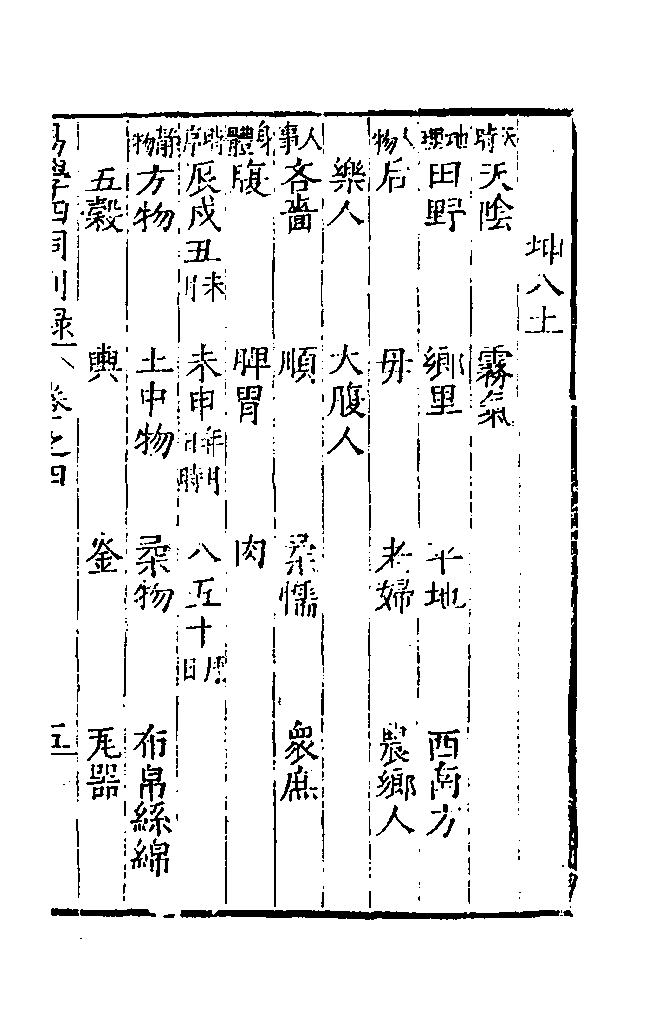 坤八土
天時 天陰 霧氣
地理 田野 鄉里 平地 西南方
人物 后 母 老婦 農鄉人
樂人 大腹人
人事 吝嗇 順 柔懦 衆庶
身體 腹 脾胃 肉
時序 辰戌丑未月 未申年月日時 八五十月日
静物 方物 土中物 柔物 布帛絲綿
五穀 輿 釜 瓦器
易學四同別録 卷之四 五